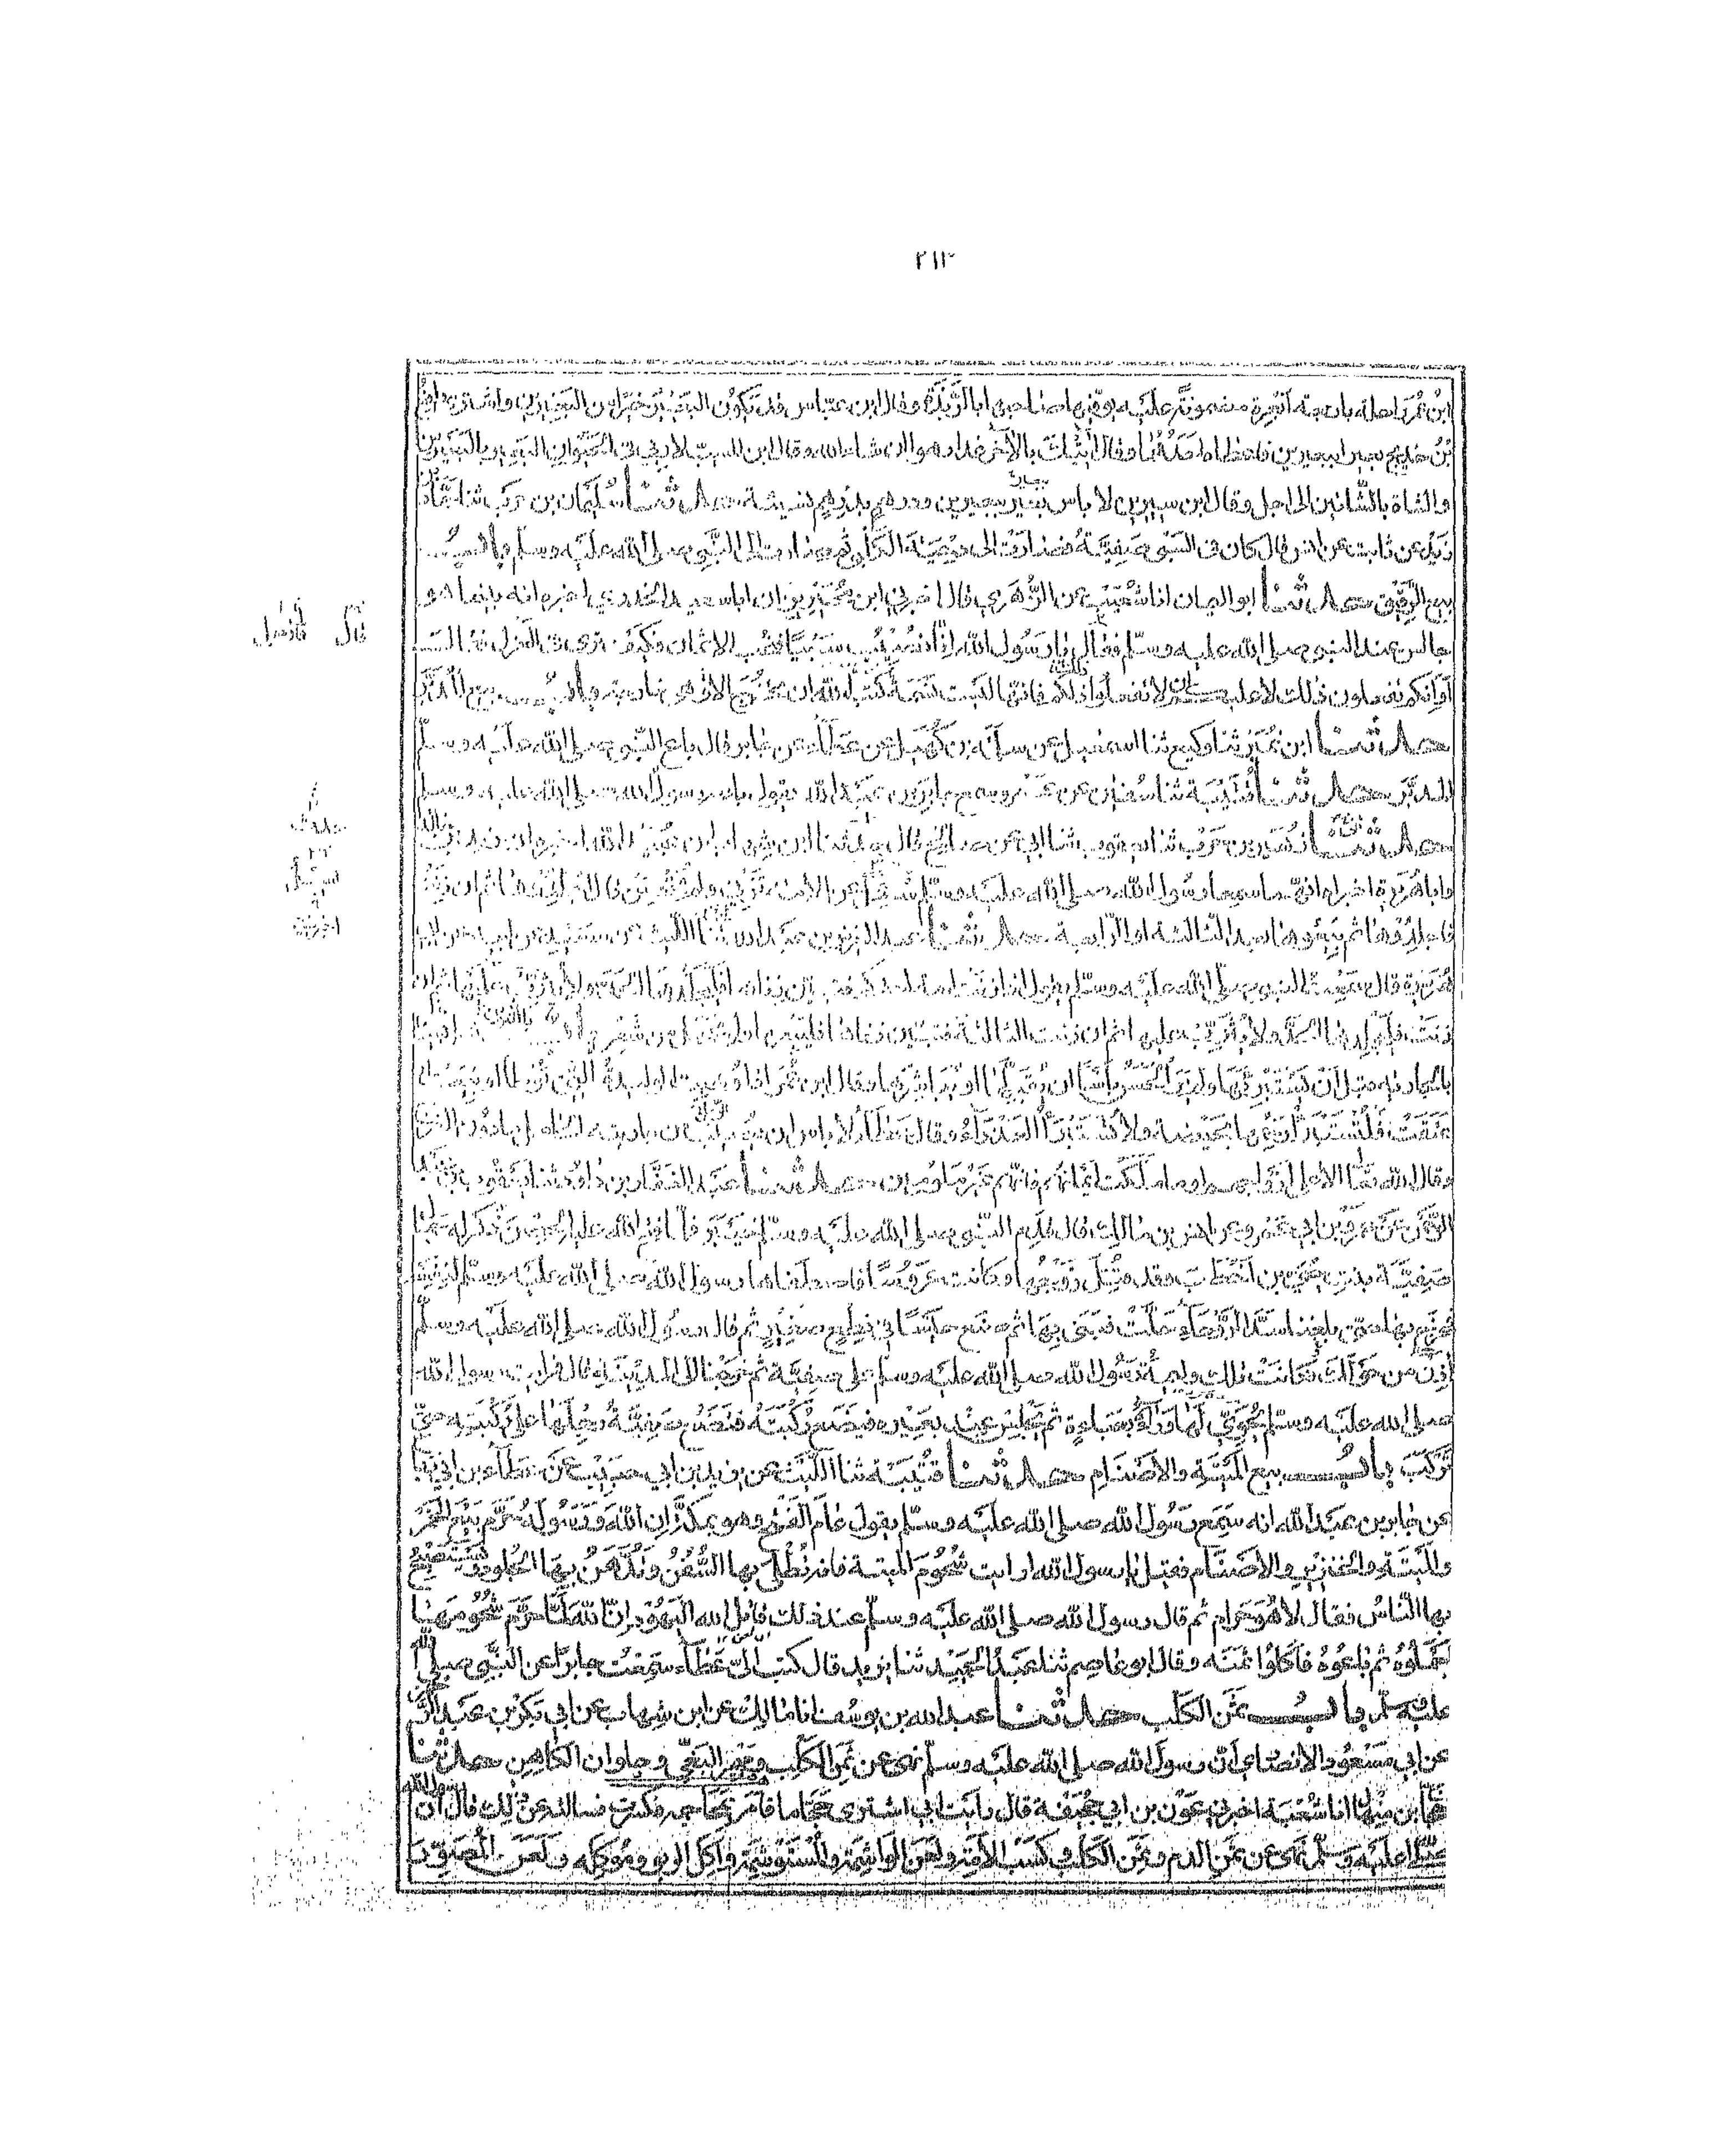 ٢١٣
ابن عمر راحلة باربعة ابعرة مضمونة عليه يوفيها صاحبها بالربذة وقال ابن عباس قد يكون البعير خيرا من البعيرين واشترى رافع
بن خديج بعيرا ببعيرين فاعطاه احدهما وقال اتيك بالاخر غدا رهوا ان شاء الله وقال ابن المسيب لا ربى فى الحيوان البعير بالبعيرين
والشاة بالشاتين الى اجل وقال ابن سيرين لا باس بعير ببعيرين ودرهم بدرهم نسيئة حدثنا سليمان بن حرب ثنا حماد
زيد عن ثابت عن انس قال كان فى السبى صفية فصارت الى دحية الكلبى ثم صارت الى النبى صلى الله عليه وسلم باب
بيع الرقيق حدثنا ابو اليمان انا شعيب عن الزهري قال اخبرني ابن محيريز ان ابا سعيد الخدري اخبره انه بينما هو
جالس عند النبى صلى الله عليه وسلم فقال يا رسول الله انا نصيب سبيا فنحب الاثمان فكيف ترى فى العزل فقال
او انكم تفعلون ذلك لا عليكم ان لا تفعلوا ذلكم فانها ليست نسمة كتب الله ان تخرج الا هى خارجة باب بيع المدبر
حدثنا ابن نمير ثنا وكيع ثنا اسمعيل عن سلمة بن كهيل عن عطاء عن جابر قال باع النبى صلى الله عليه وسلم
المدبر حدثنا قتيبة ثنا سفيان عن عمرو سمع جابر بن عبد الله يقول باعه رسول الله صلى الله عليه وسلم
حدثنا زهير بن حرب ثنا يعقوب ثنا ابي عن صالح قال حدثنا ابن شهاب ان عبيد الله اخبره ان زيد بن خالد
وابا هريرة اخبراه انهما سمعا رسول الله صلى الله عليه وسلم يسئل عن الامة تزني ولم تحصن قال اجلدوها ثم ان زنت
فاجلدوها ثم بيعوها بعد الثالثة او الرابعة حدثنا عبد العزيز بن عبد الله انا الليث عن سعيد عن ابيه عن ابي
هريرة قال سمعت النبى صلى الله عليه وسلم يقول اذا زنت امة احدكم فتبين زناها فليجلدها الحد ولا يثرب عليها ثم ان
زنت فليجلدها الحد ولا يثرب عليها ثم ان زنت الثالثة فتبين زناها فليبعها ولو بحبل من شعر باب هل يسافر
بالجارية قبل ان يستبرئها ولم ير الحسن باسا ان يقبلها او يباشرها وقال ابن عمر اذا وهبت الوليدة التى توطأ او بيعت او
عتقت فلتستبرأ رحمها بحيضة ولا تستبرأ العذراء وقال عطاء لا باس ان يصيب من جاريته الحامل ما دون الفرج
وقال الله تعالى الا على ازواجهم او ما ملكت ايمانهم فانهم غير ملومين حدثنا عبد الغفار بن داود ثنا يعقوب بن عبد
الرحمن عن عمرو بن ابي عمرو عن انس بن مالك قال قدم النبى صلى الله عليه وسلم خيبر فلما فتح الله عليه الحصن ذكر له جمال
صفية بنت حيي بن اخطب وقد قتل زوجها وكانت عروسا فاصطفاها رسول الله صلى الله عليه وسلم لنفسه
فخرج بها حتى بلغنا سد الروحاء حلت فبنى بها ثم صنع حيسا في نطع صغير ثم قال رسول الله صلى الله عليه وسلم
اذن من حولك فكانت تلك وليمة رسول الله صلى الله عليه وسلم على صفية ثم خرجنا الى المدينة قال فرايت رسول الله
صلى الله عليه وسلم يحوي لها وراءه بعباءة ثم يجلس عند بعيره فيضع ركبته فتضع صفية رجلها على ركبته حتى
تركب باب بيع الميتة والاصنام حدثنا قتيبة ثنا الليث عن يزيد بن ابي حبيب عن عطاء بن ابي رباح
عن جابر بن عبد الله انه سمع رسول الله صلى الله عليه وسلم يقول عام الفتح وهو بمكة ان الله ورسوله حرم بيع الخمر
والميتة والخنزير والاصنام فقيل يا رسول الله ارايت شحوم الميتة فانه تطلى بها السفن وتدهن بها الجلود ويستصبح
بها الناس فقال لا هو حرام ثم قال رسول الله صلى الله عليه وسلم عند ذلك قاتل الله اليهود ان الله لما حرم شحومها
جملوه ثم باعوه فاكلوا ثمنه وقال ابو عاصم ثنا عبد الحميد ثنا يزيد قال كتب الى عطاء سمعت جابرا عن النبى صلى الله
عليه وسلم باب ثمن الكلب حدثنا عبد الله بن يوسف انا مالك عن ابن شهاب عن ابي بكر بن عبد الرحمن
عن ابي مسعود الانصاري ان رسول الله صلى الله عليه وسلم نهى عن ثمن الكلب ومهر البغي وحلوان الكاهن حدثنا
حجاج بن منهال انا شعبة اخبرني عون بن ابي جحيفة قال رايت ابي اشترى حجاما فامر بمحاجمه فكسرت فسالته عن ذلك قال ان رسول الله
صلى الله عليه وسلم نهى عن ثمن الدم وثمن الكلب وكسب الامة ولعن الواشمة والمستوشمة واكل الربو وموكله ولعن المصور
قال